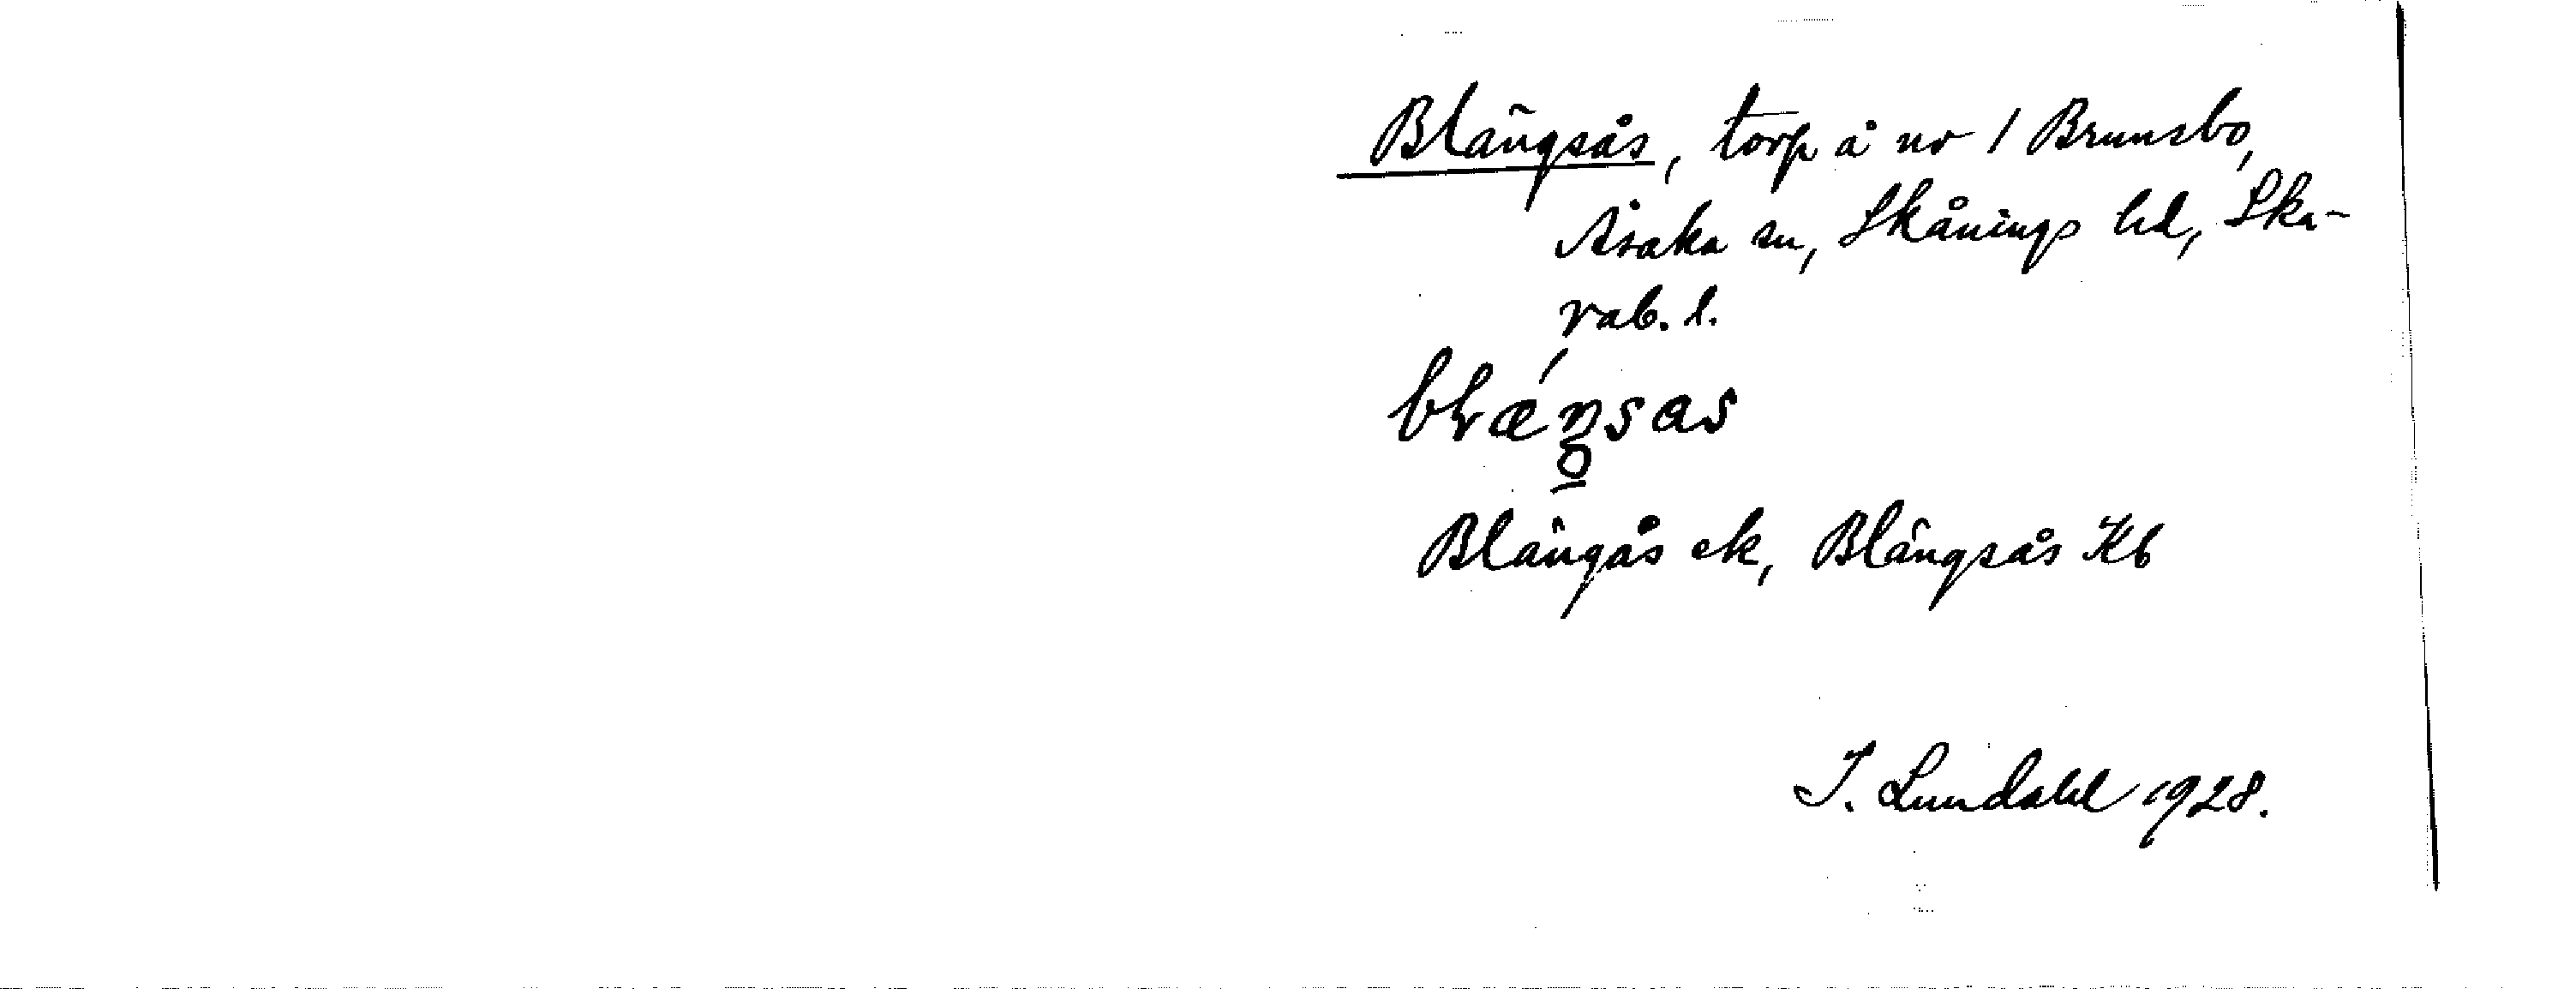 Blängsås, torp å nr 1 Brunsbo,
Åsaka sn, Skånings hd, Ska-
rab. l.
Blängås ek, Blängsås Kb
I. Lundahl 1928.